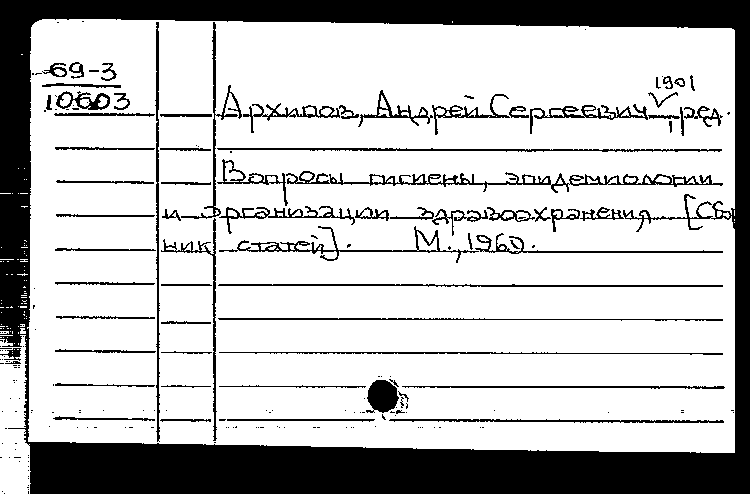 69-3
10603
1901
Архипов, Андрей Сергеевич, ред.
Вопросы гигиены, эпидемиологии
и организации здравоохранения [Сбор
ник статей]. М., 1960.